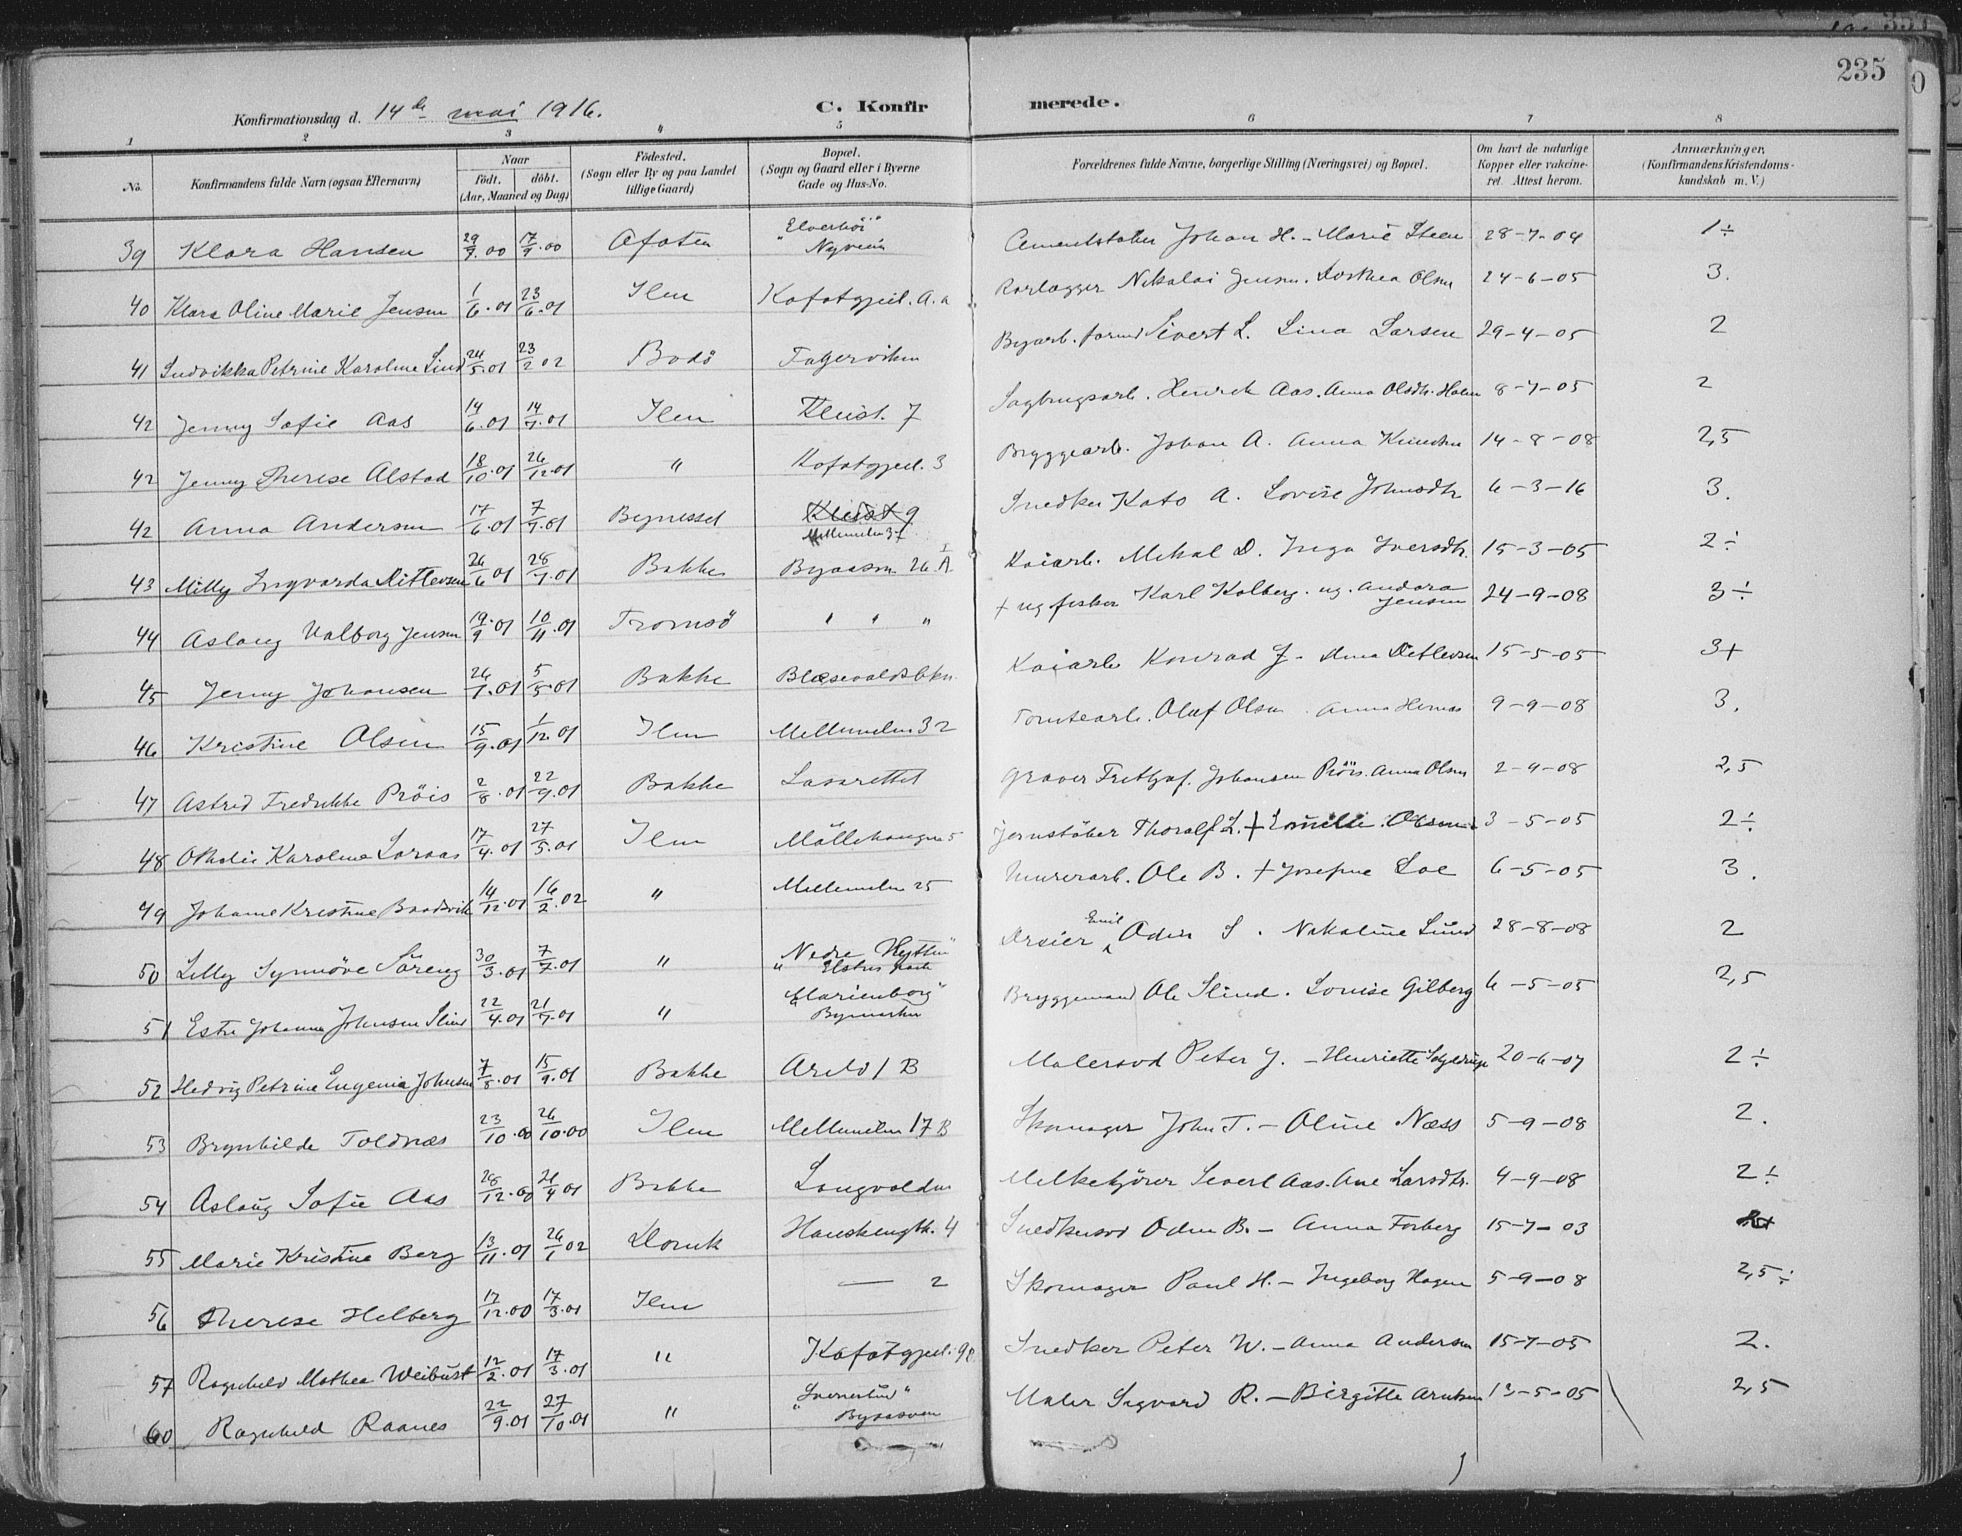 235
Konfirmationsdag d. 14de mai 1916.
C. Konfirmerede.
1 2 3 4 5 6 7 8
No.
Konfirmandens fulde Navn (ogsaa Efternavn)
Naar
födt. döbt.
(Aar, Maaned og Dag)
Födested.
(Sogn eller By og paa Landet
tillige Gaard)
Bopæl.
(Sogn og Gaard eller i Byerne
Gade og Hus-No.
Forældrenes fulde Navne, borgerlige Stilling (Næringsvei) og Bopæl.
Om havt de naturlige
Kopper eller vakcine-
ret. Attest herom.
Anmærkninger.
(Konfirmandens Kristendoms-
kundskab m. V.)
39 Klara Hansen 29/7.00 17/9.00 Afoten "Elverhöi" Nyveien Johan H. - Marie Steen 28-7-04 1÷
40 Klara Oline Marie Jensen 1/6.01 23/6.01 Ilen Rørlægger Nikolai Jensen. Dorthea Olsen 24-6-05 3.
41 Ludvikka Petrine Karoline Lind 24/5.01 23/2 02 Bodö Fagerviken Byarb. formd Sivert L. Lina Larsen 29-4-05 2
42 Jenny Sofie Aas 14/6.01 14/7.01 Ilen 7 Sagbrugsarb. Henrik Aas. Anna Olsdtr. Holen 8-7-05 2
42 Jenny Therese Alstad 18/10.01 26/12.01 " 3 Bryggearb. Johan A. Anna 14-8-08 2,5
42 Anna Andersen 17/6.01 7/7.01 Bynesset 9 Mellemilen 37 Snedker Kato A. Lovise Johnsdtr 6-3-16 3.
43 Milly Ingvarda Ditlevsen 26/6 01 28/7.01 Bakke Byaasen 26 A Kaiarb. Mikal D. Inga Iversdtr. 15-3-05 2÷
44 Aslaug Valborg Jensen 19/9.01 10/11.01 Tromsö " " " + ug fisker Karl Kolberg. ug. Andora Jensen 24-9-08 3÷
45 Jenny Johansen 26/1.01 5/5.01 Bakke Kaiarb Konrad J- Ditlevsen 15-5-05 3+
46 Kristine Olsen 15/9.01 1/12 01 Ilen Mellemilen 32 Tomtearb. Oluf Olsen. Anna 9-9-08 3.
47 Astrid Fredrikke Pröis 2/8.01 22/9.01 Bakke Lasarettet Graver Frithjof Johansen Pröis. Anna Olsen 2-9-08 2,5
48 Karoline 17/4.01 27/5.01 Ilen Möllehaugen 5 Jernstöber Thoralf L. + Olsen 3-5-05 2÷
49 Johanne Kristine Baadsvik 14/12.01 16/2.02 " Mellemilen 25 Murerarb. Ole B. + Josefine Loe 6-5-05 3.
50 Lilly Synnöve Söreng 30/3.01 7/7.01 " "Nedre Hytten" Emil Odin S. Nikoline Lund 28-8-08 2
51 Johanna Johnsen Slind 22/4.01 21/7.01 " "Marienborg" Bymarken Bryggemand Ole Slind. Lovise Gilberg 6-5-05 2,5
52 Hedvig Petrine Eugenia Johnsen 7/8.01 15/9.01 Bakke 1 B Malersvd Peter J. - Henriette 20-6-07 2÷
53 Brynhilde Toldnæs 23/10.00 26/10.00 Ilen Mellemilen 17 B Skomager John T. - Oline Næss 5-9-08 2.
54 Aslaug Sofie Aas 28/12.00 21/4 01 Bakke Melkekjörer Sivert Aas. Ane Larsdtr. 4-9-08 2÷
55 Marie Kristine Berg 13/11.01 26/1 02 Domk Hanskemgtn. 4 Snedkersvd Odin B. - Anna Forberg 15-7-03
56 Therese Helberg 17/12.00 17/3.01 Ilen — 2 Skomager Paul H. - Ingeborg Hagen 5-9-08 2,5÷
57 Ragnhild Mathea Weibust 12/2.01 17/3.01 " Snedker Peter W. - Anna Andersen 15-7-05 2.
60 Ragnhild Raanes 22/9.01 27/10.01 " Byaasveien Maler Sigvard R. - Birgitte Arntsen 13-5-05 2,5